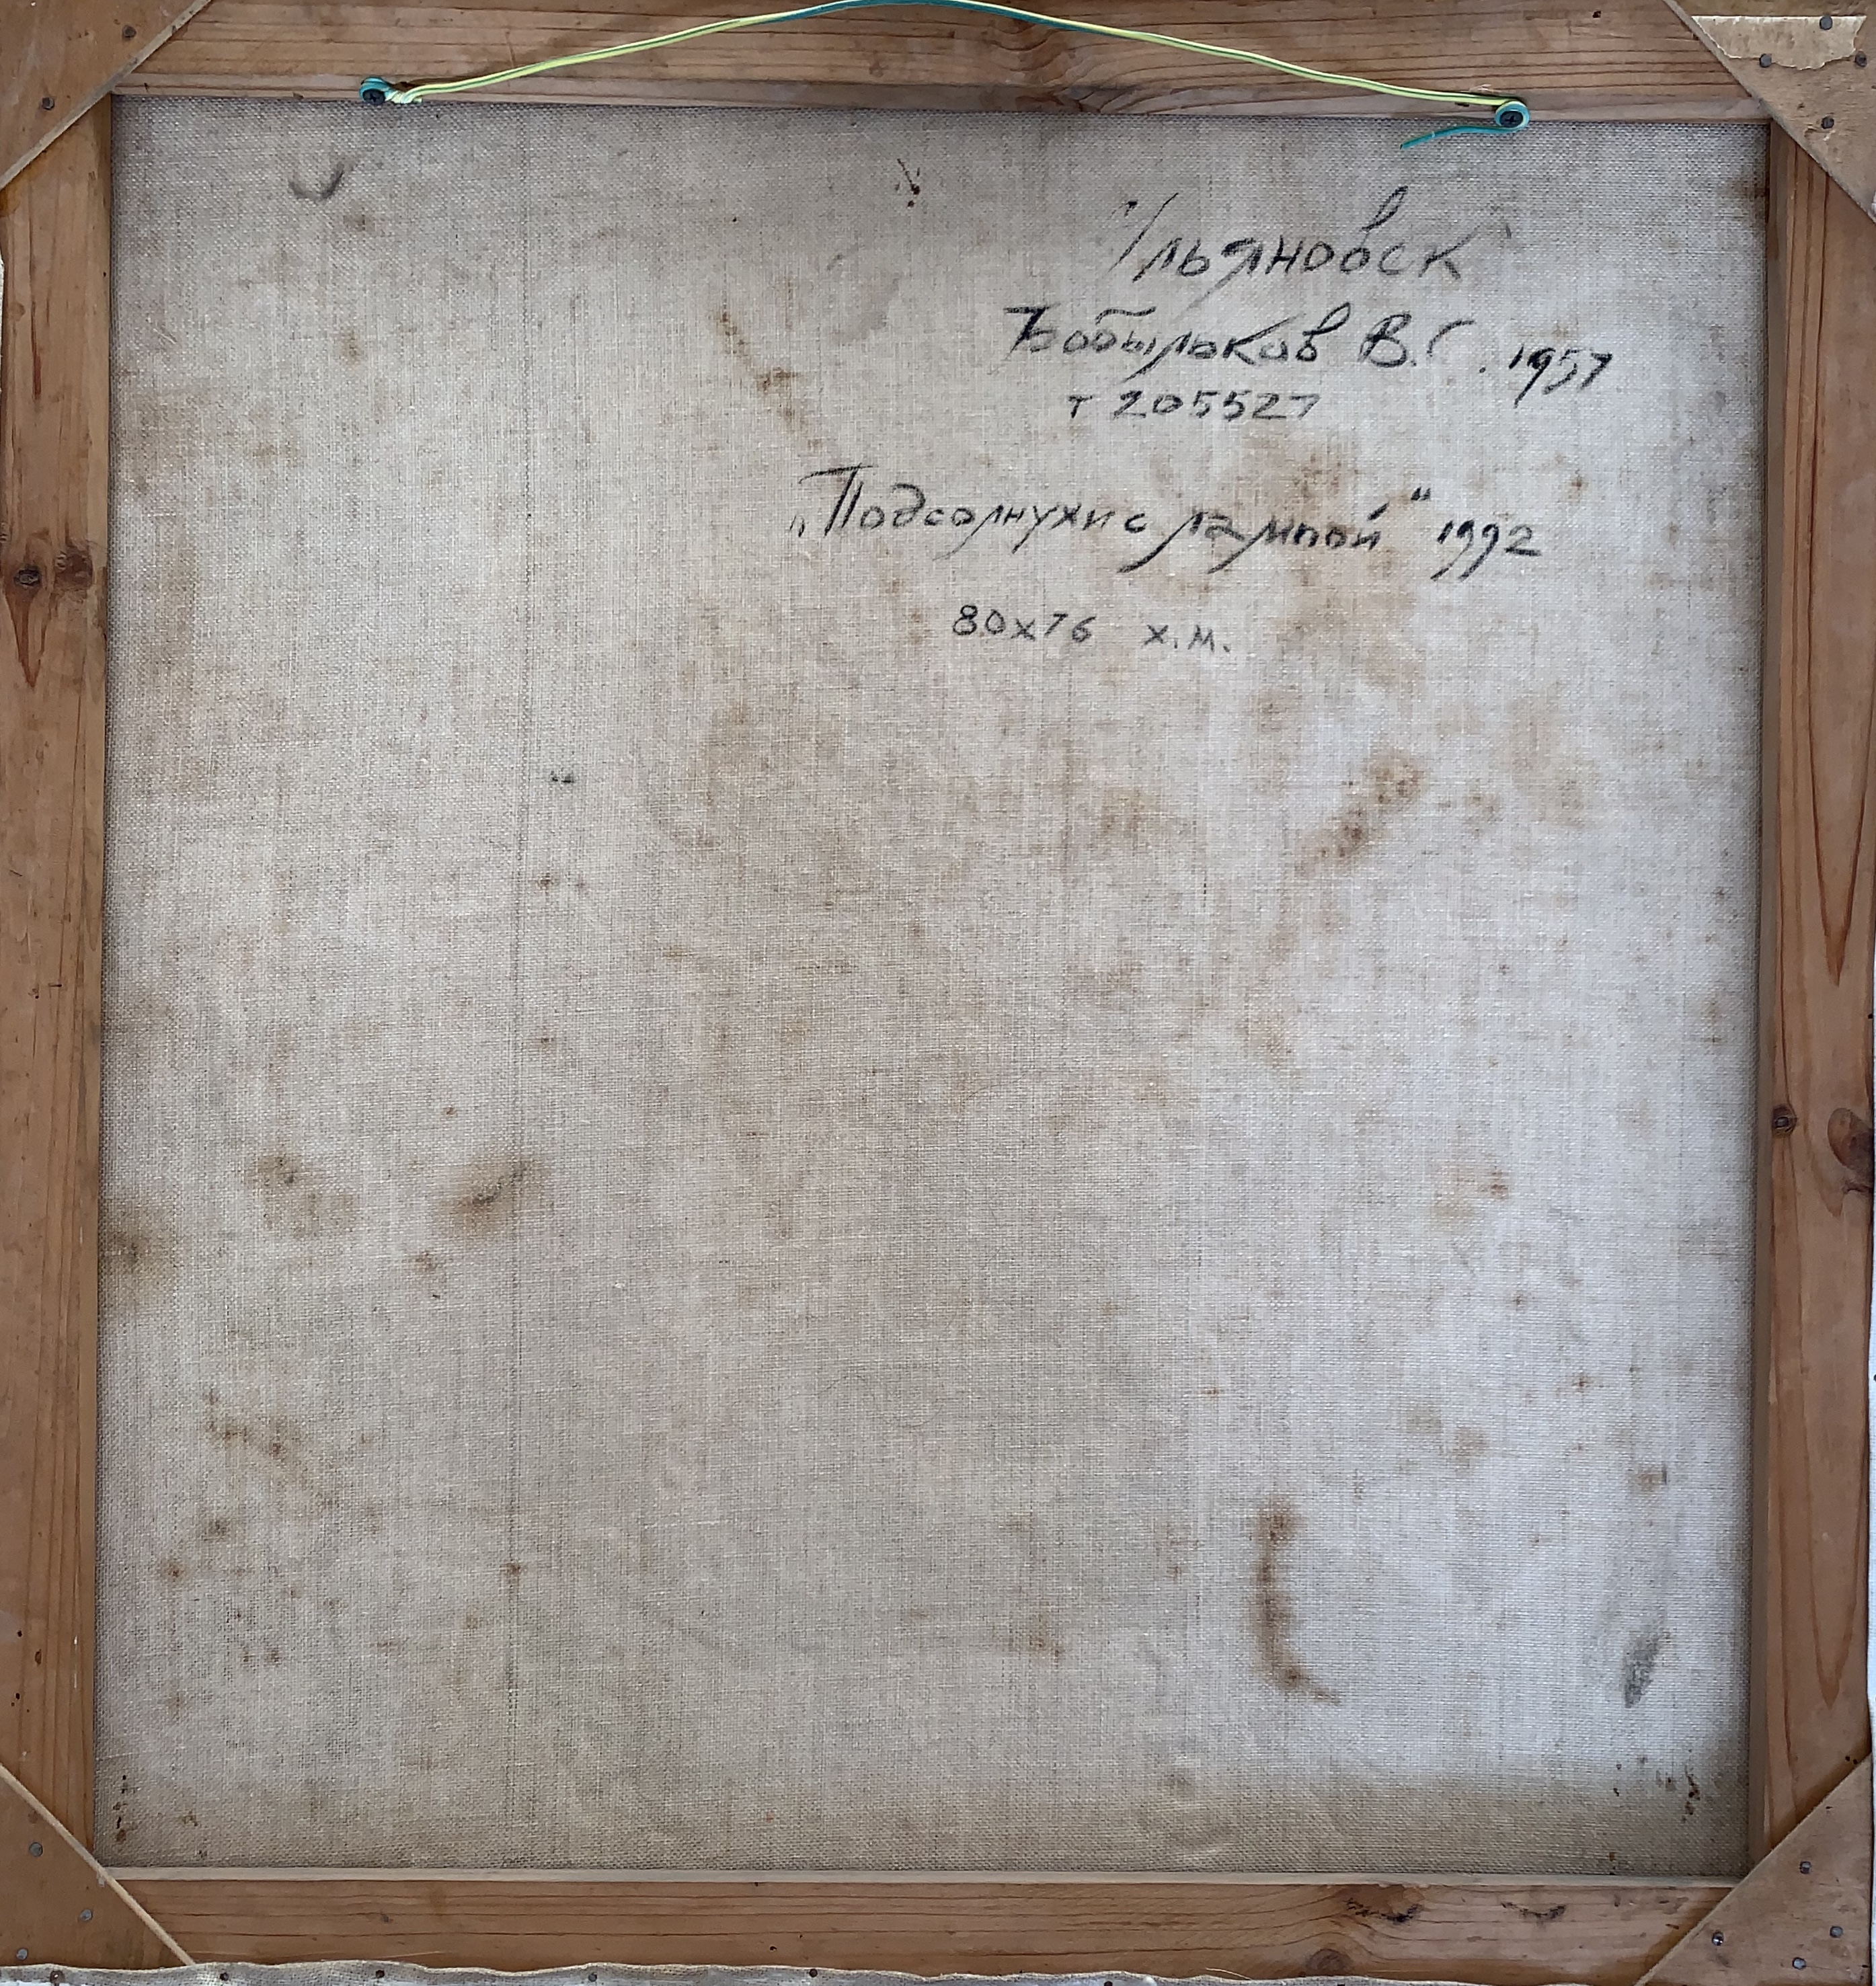 Ульяновск
Бобыльков В.Г. 1957
т 205527
„Подсолнухи с лампой“ 1992
80х76 х.м.